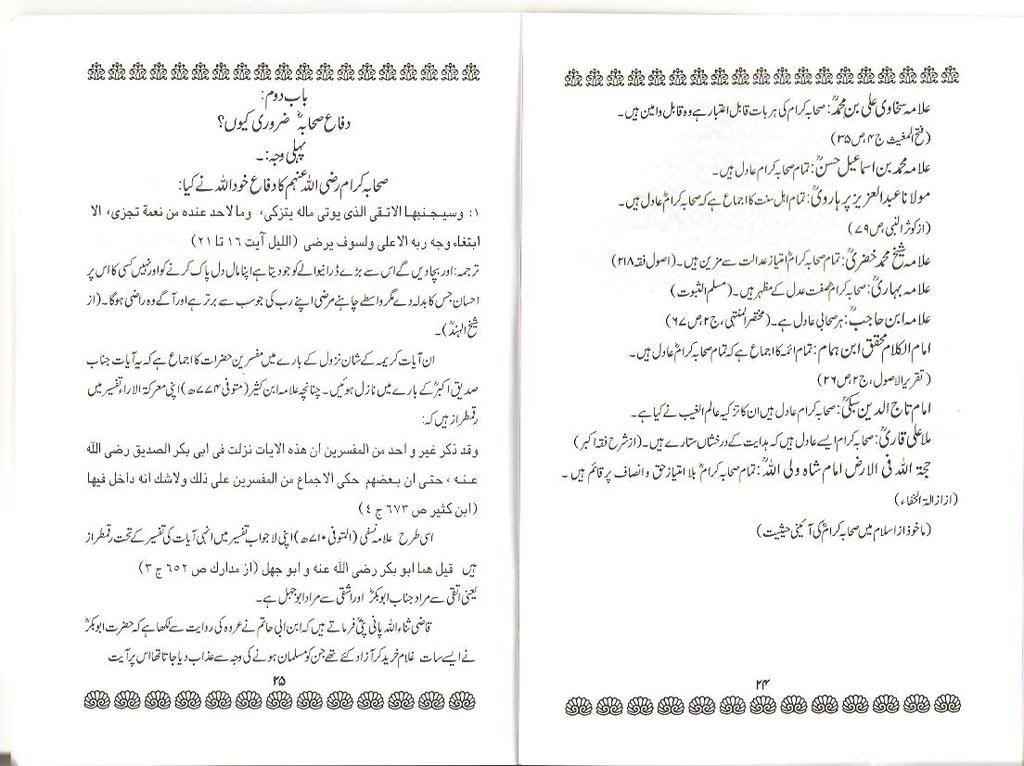 علامہ سخاوی علی بن محمدؒ: صحابہ کرام کی ہر بات قابل اعتبار ہے وہ قابل وامین ہیں۔
(فتح المغیث ج۴،ص۳۵)
علامہ محمد بن اسماعیل حسنؒ: تمام صحابہ کرام عادل ہیں۔
مولانا عبدالعزیز پرہارویؒ: تمام اہل سنت کا اجماع ہے کہ صحابہ کرامؓ عادل ہیں۔
(از کوثر النبی،ص۷۹)
علامہ شیخ محمد خضریؒ: تمام صحابہ کرامؓ امتیاز عدالت سے مزین ہیں۔(اصول فقہ ۲۱۸)
علامہ بہاریؒ: صحابہ کرامؓ صفت عدل کے مظہر ہیں۔(مسلم الثبوت)
علامہ ابن حاجبؒ: ہر صحابی عادل ہے۔(مختصر المنتہی،ج۲،ص۶۷)
امام الکلام محقق ابن ہمام: تمام ائمہ کا اجماع ہے کہ تمام صحابہ کرامؓ عادل ہیں۔
(تقریر الاصول،ج۲،ص۲۶)
امام تاج الدین سبکیؒ: صحابہ کرام عادل ہیں ان کا تزکیہ عالم الغیب نے کیا ہے۔
ملا علی قاریؒ: صحابہ کرام ایسے عادل ہیں کہ ہدایت کے درخشاں ستارے ہیں۔(از شرح فقہ اکبر)
حجۃ اللہ فی الارض امام شاہ ولی اللہؒ: تمام صحابہ کرامؓ بلا امتیاز حق و انصاف پر قائم ہیں۔
(از ازالۃ الخفاء)
(ماخوذ از اسلام میں صحابہ کرامؓ کی آئینی حیثیت)
۲۴
باب دوم:
دفاع صحابہؓ ضروری کیوں؟
پہلی وجہ:۔
صحابہ کرام رضی اللہ عنہم کا دفاع خود اللہ نے کیا:
۱: وسیجنبھا الاتقی الذی یوتی مالہ یتزکی، ومالاحد عندہ من نعمة تجزی، الا
ابتغاء وجه ربه الاعلی ولسوف یرضی (اللیل آیت ۱۶ تا ۲۱)
ترجمہ: اور بچادیں گے اس سے بڑے ڈرانیوالے کو جو دیتا ہے اپنا مال دل پاک کرنے کو اور نہیں کسی کا اس پر
احسان جس کا بدلہ دے مگر واسطے چاہنے مرضی اپنے رب کی جو سب سے برتر ہے اور آگے وہ راضی ہوگا۔(از
شیخ الہندؒ)۔
ان آیات کریمہ کے شان نزول کے بارے میں مفسرین حضرات کا اجماع ہے کہ یہ آیات جناب
صدیق اکبرؓ کے بارے میں نازل ہوئیں۔ چنانچہ علامہ ابن کثیر (متوفی ۷۷۴ھ) اپنی معرکۃ الاراء تفسیر میں
رقمطراز ہیں کہ:
وقد ذکر غیر و احد من المفسرین ان ھذہ الایات نزلت فی ابی بکر الصدیق رضی اللہ
عنہ، حتی ان بعضھم حکی الاجماع من المفسرین علی ذلك ولاشك انه داخل فیھا
(ابن کثیر ص ۶۷۳ ج ٤)
اسی طرح علامہ نسفی (المتوفی ۷۱۰ھ) اپنی لاجواب تفسیر میں انہی آیات کی تفسیر کے تحت رقمطراز
ہیں قیل ھما ابو بکر رضی اللہ عنہ و ابو جھل (از مدارك ص ۶۵۲ ج ۳)
یعنی اتقی سے مراد جناب ابوبکرؓ اور اشقی سے مراد ابوجہل ہے۔
قاضی ثناءاللہ پانی پتیؒ فرماتے ہیں کہ ابن ابی حاتم نے عروہ کی روایت سے لکھا ہے کہ حضرت ابوبکرؓ
نے ایسے سات غلام خرید کر آزاد کئے تھے جن کو مسلمان ہونے کی وجہ سے عذاب دیا جاتا تھا اس پر آیت
۲۵